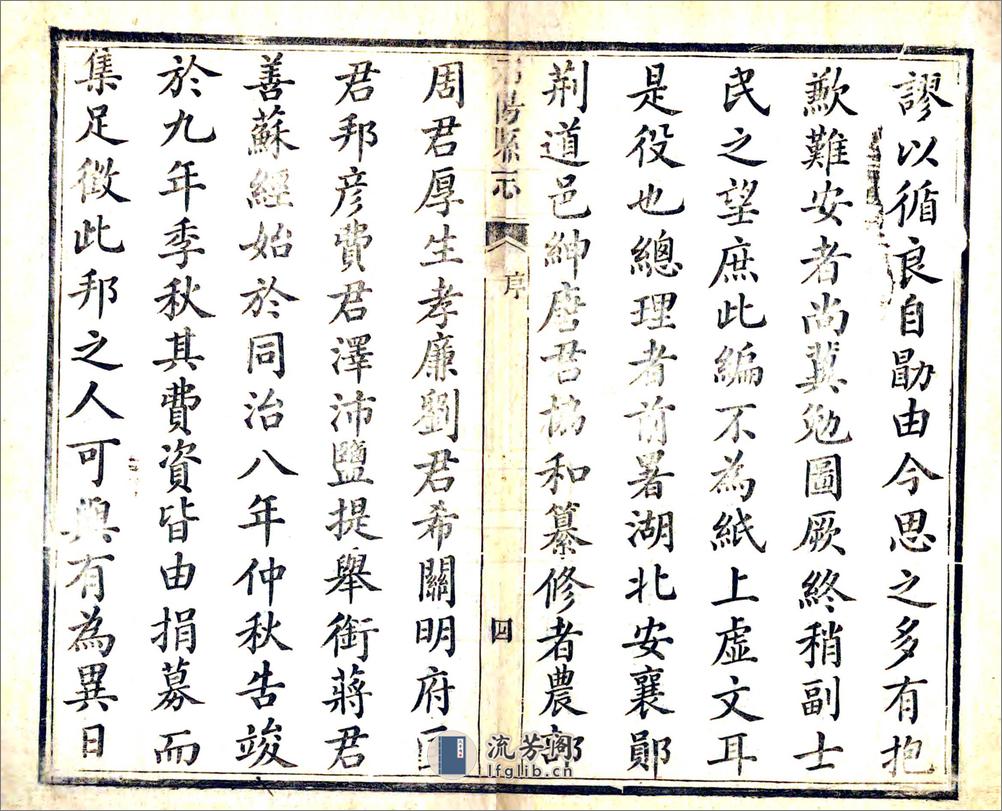 謬以循良自勖由今思之多有抱
歉難安者尚冀勉圖厥終稍副士
民之望庶此編不為紙上虛文耳
是役也總理者前署湖北安襄鄖
荆道邑紳唐君協和纂修者農部
祁陽縣志
序
四
周君厚生孝廉劉君希關明府匡
君邦彦費君澤沛鹽提舉銜蔣君
善蘇經始於同治八年仲秋告竣
於九年季秋其費資皆由捐募而
集足徵此邦之人可與有為異日
流芳阁
lfglib.cn